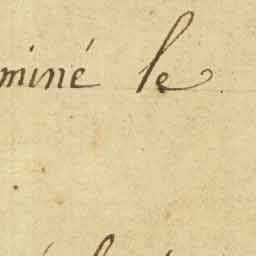 miné le